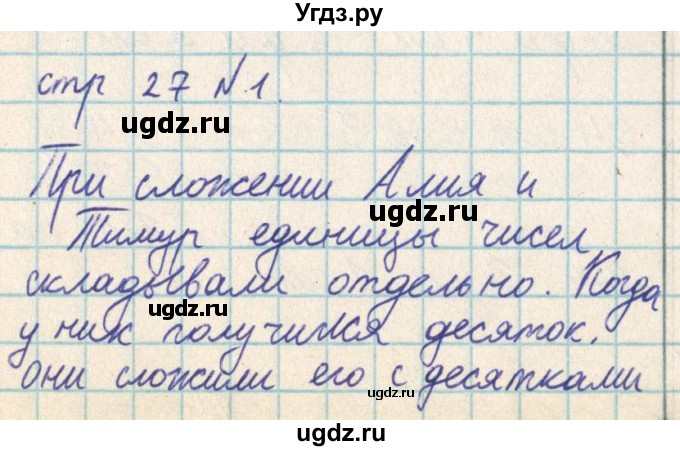 Угдз.ру
стр 27 №1.
ugdz.ru
При сложении Алия и
ugdz.ru
Тимур единицы чисел
складывали отдельно. Когда
ugdz.ru
у них получился десяток,
они сложили его с десятками
ugdz.ru
ugdz.ru